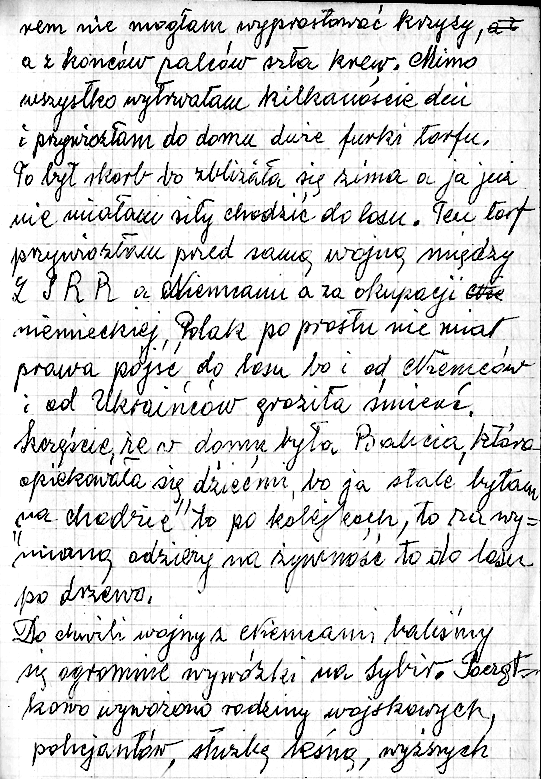 rem nie mogłam wyprostować krzyży,
a z końców palców szła krew. Mimo
wszystko wytrwałam kilkanaście dni
i przywiozłam do domu duże furki torfu.
To był skarb bo zbliżała się zima a ja już
nie miałam siły chodzić do lasu. Ten torf
przywiozłam przed samą wojną między
Z S R R a Niemcami a za okupacji
niemieckiej, Polak po prostu nie miał
prawa pójść do lasu bo i od Niemców
i od Ukraińców groziła śmierć.
Szczęście, że w domu była Pralicia, która
opiekowała się dziećmi, bo ja stale byłam
"na chodzie" to po kolejkach, to za wy=
"mianą odzieży na żywność to do lasu
po drzewo.
Do chwili wojny z Niemcami, baliśmy
się ogromnie wywózki na Sybir. Począt=
kowo wywożono rodziny wojskowych,
policjantów, służbę leśną, wyższych